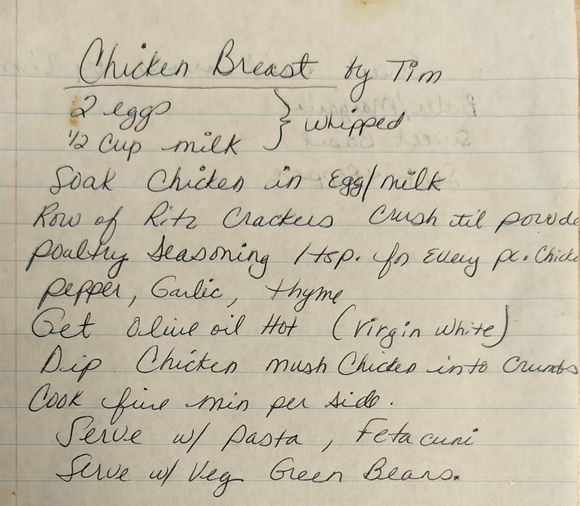 Chicken Breast by Tim
2 eggs
1/2 cup milk } whipped
Soak Chicken in Egg/milk
Row of Ritz Crackers Crush til powde
Poaltry Seasoning 1 tsp. for Every pc. Chicke
Pepper, Garlic, thyme
Get Olive oil Hot (Virgin White)
Dip Chicken mush Chicken into Crumbs
Cook five min per side.
Serve w/ Pasta, Fetacuni
Serve w/ Veg Green Beans.